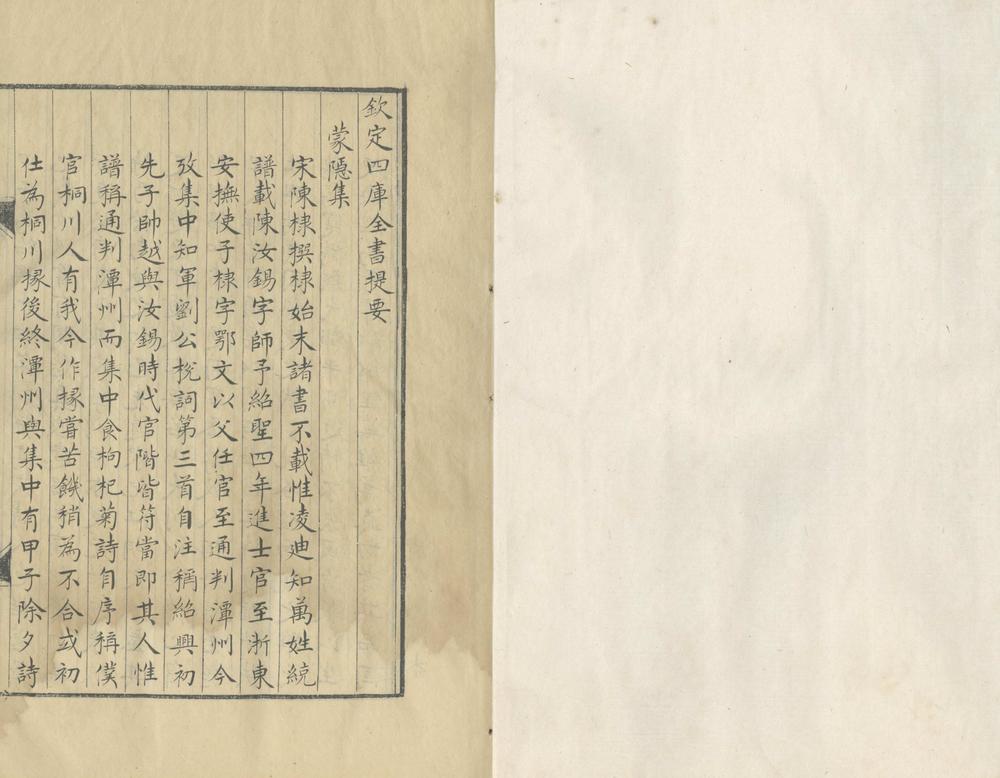 欽定四庫全書提要
蒙隱集
宋陳棣撰棣始末諸書不載惟凌迪知萬姓統
譜載陳汝錫字師予紹聖四年進士官至浙東
安撫使子棣字鄂文以父任官至通判潭州今
攷集中知軍劉公挽詞第三首自注稱紹興初
先子帥越與汝錫時代官階皆符當即其人惟
譜稱通判潭州而集中食枸杞菊詩自序稱僕
官桐川人有我今作掾嘗苦饑稍為不合或初
仕為桐川掾後終潭州與集中有甲子除夕詩